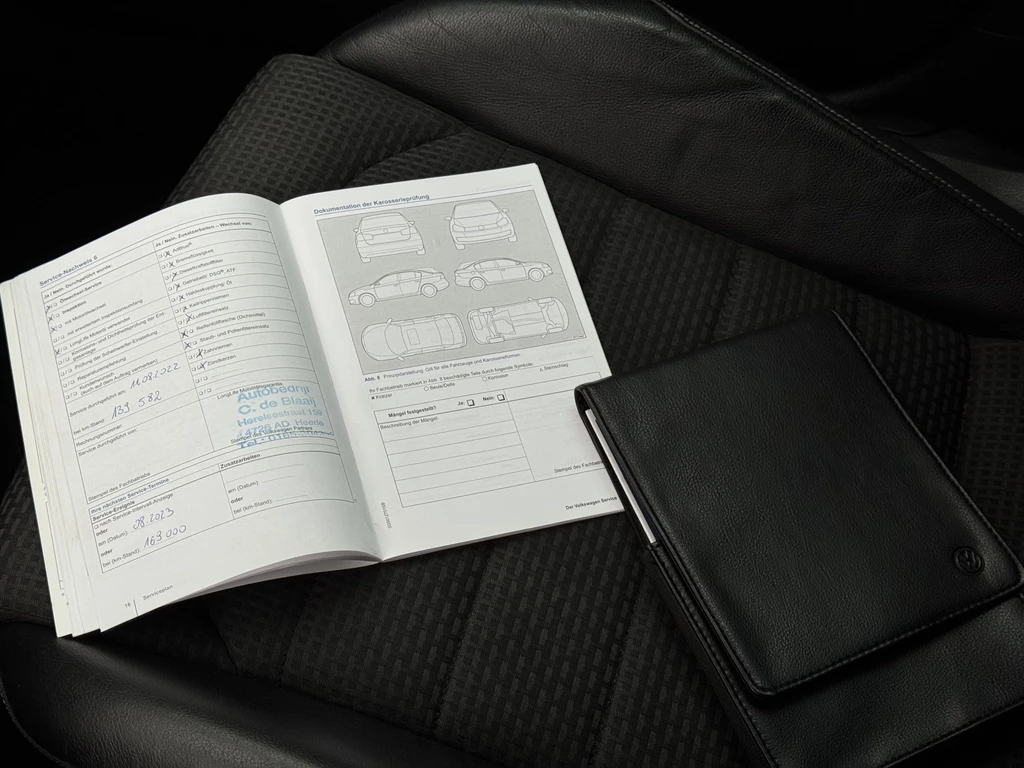 Service-Nachweis 6
Ja / Nein, Durchgeführt wurde:
Ölwechsel-Service
Inspektion
mit Motorölwechsel
mit erweitertem Inspektionsumfang
LongLife Motoröl verwendet
Korrosions- und Dichtheitsprüfung der Erd-
gasanlage
Prüfung der Scheinwerfer-Einstellung
Reparaturempfehlung
Kundenwunsch
(auch auf dem Auftrag vermerken)
Service durchgeführt am: 11.08.2022
bei km-Stand: 133 582
Rechnungsnummer:
Service durchgeführt von:
Stempel des Fachbetriebs
Ja / Nein, Zusatzarbeiten – Wechsel von:
AdBlue®
Bremsflüssigkeit
Dieselkraftstofffilter
Getriebeöl: DSG®, ATF
Haldexkupplung: Öl
Keilrippenriemen
Luftfiltereinsatz
Reifenfüllflasche (Dichtmittel)
Staub- und Pollenfiltereinsatz
Zahnriemen
Zündkerzen
LongLife Mobilitätsgarantie
Autobedrijf
C. de Blaaij
Herelsestraat 159
4726 AD Heerle
Tel.: 0165
Stempel des Volkswagen Partners
Ihre nächsten Service-Termine
Service-Ereignis
nach Service-Intervall-Anzeige
oder
am (Datum): 08.2023
oder
bei (km-Stand): 163 000
Zusatzarbeiten
am (Datum):
oder
bei (km-Stand):
16 Serviceplan
Dokumentation der Karosserieprüfung
Abb. 8 Prinzipdarstellung: Gilt für alle Fahrzeuge und Karosserieformen.
Ihr Fachbetrieb markiert in Abb. 8 beschädigte Teile durch folgende Symbole:
Kratzer Beule/Delle Korrosion Steinschlag
Mängel festgestellt? Ja: Nein:
Beschreibung der Mängel:
Stempel des Fachbetriebs
Der Volkswagen Service